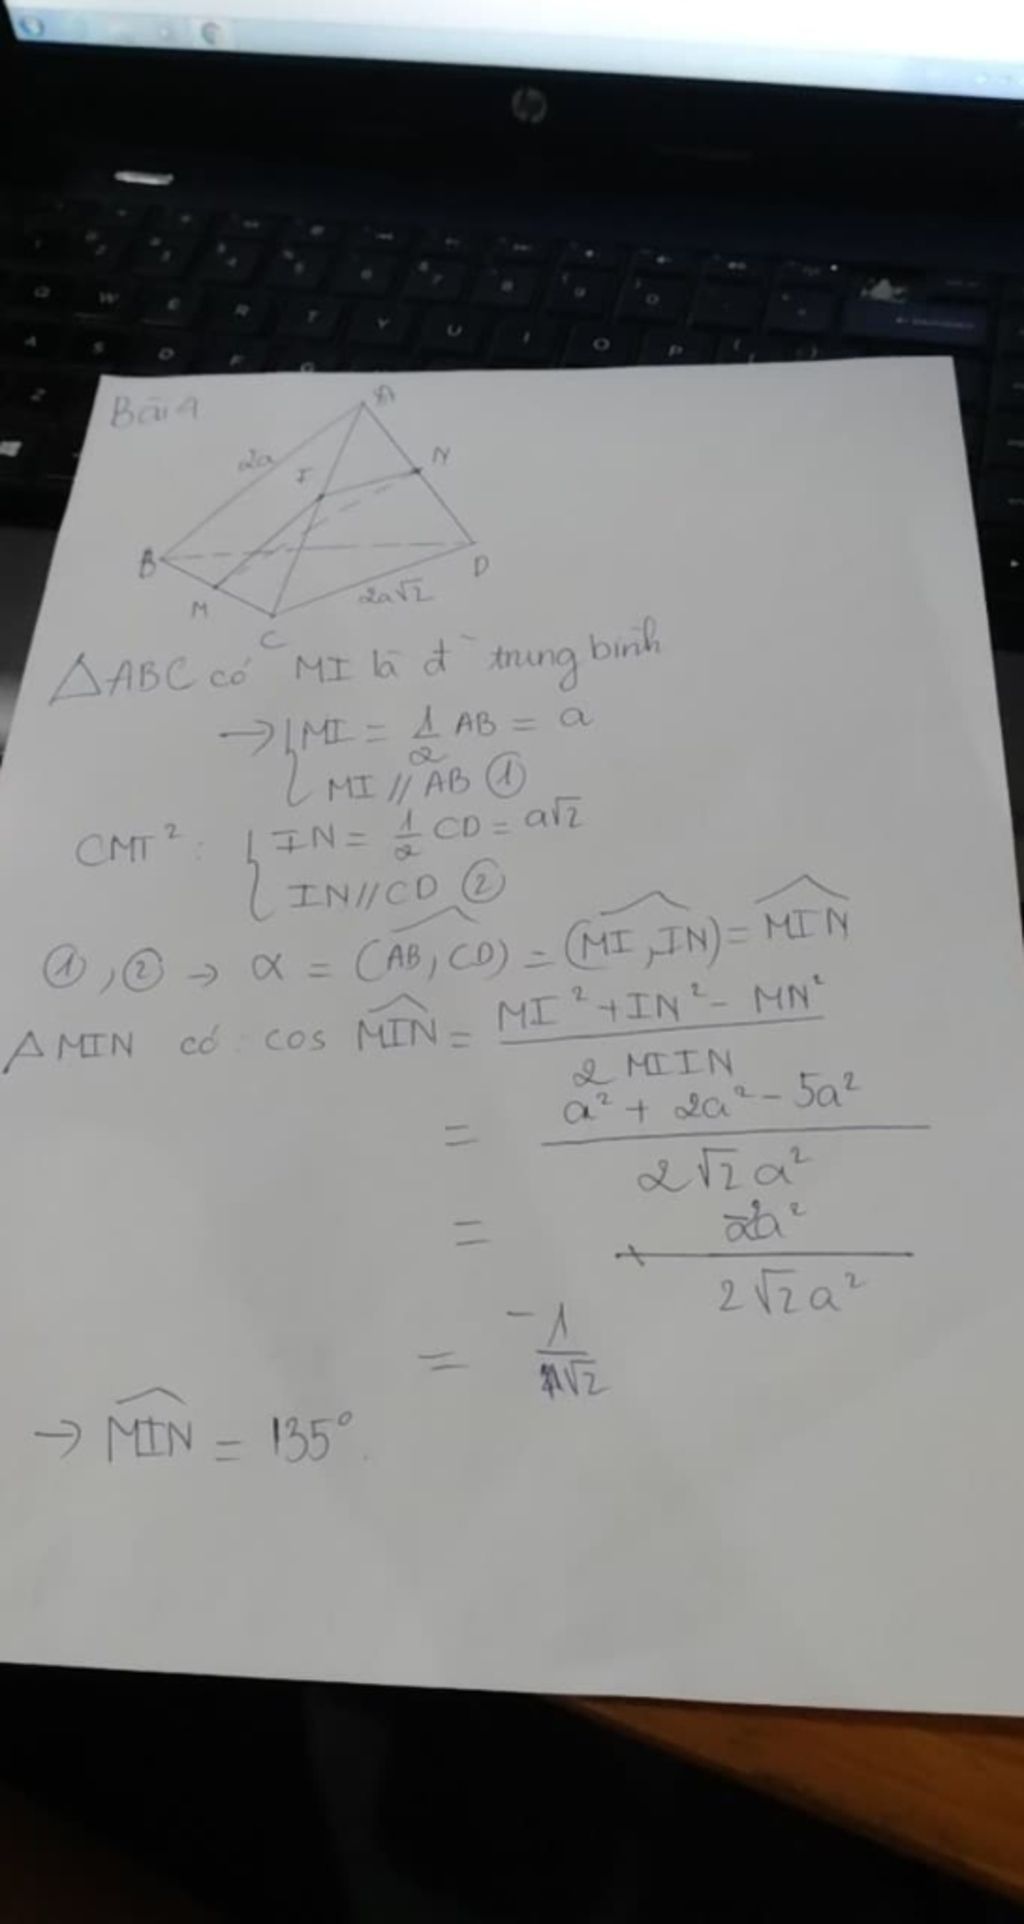 hp
Bài 4
A
2a
I
N
B
D
M
2a√2
C
△ABC có MI là đ trung bình
→ { MI = 1/2 AB = a
MI // AB ①
CMT²: { IN = 1/2 CD = a√2
IN // CD ②
①, ② → α = (AB, CD) = (MI, IN) = MIN
△MIN có: cos MIN = (MI² + IN² - MN²) / (2 MI IN)
= (a² + 2a² - 5a²) / (2√2 a²)
= 2a² / (2√2 a²)
= -1/√2
→ MIN = 135°.